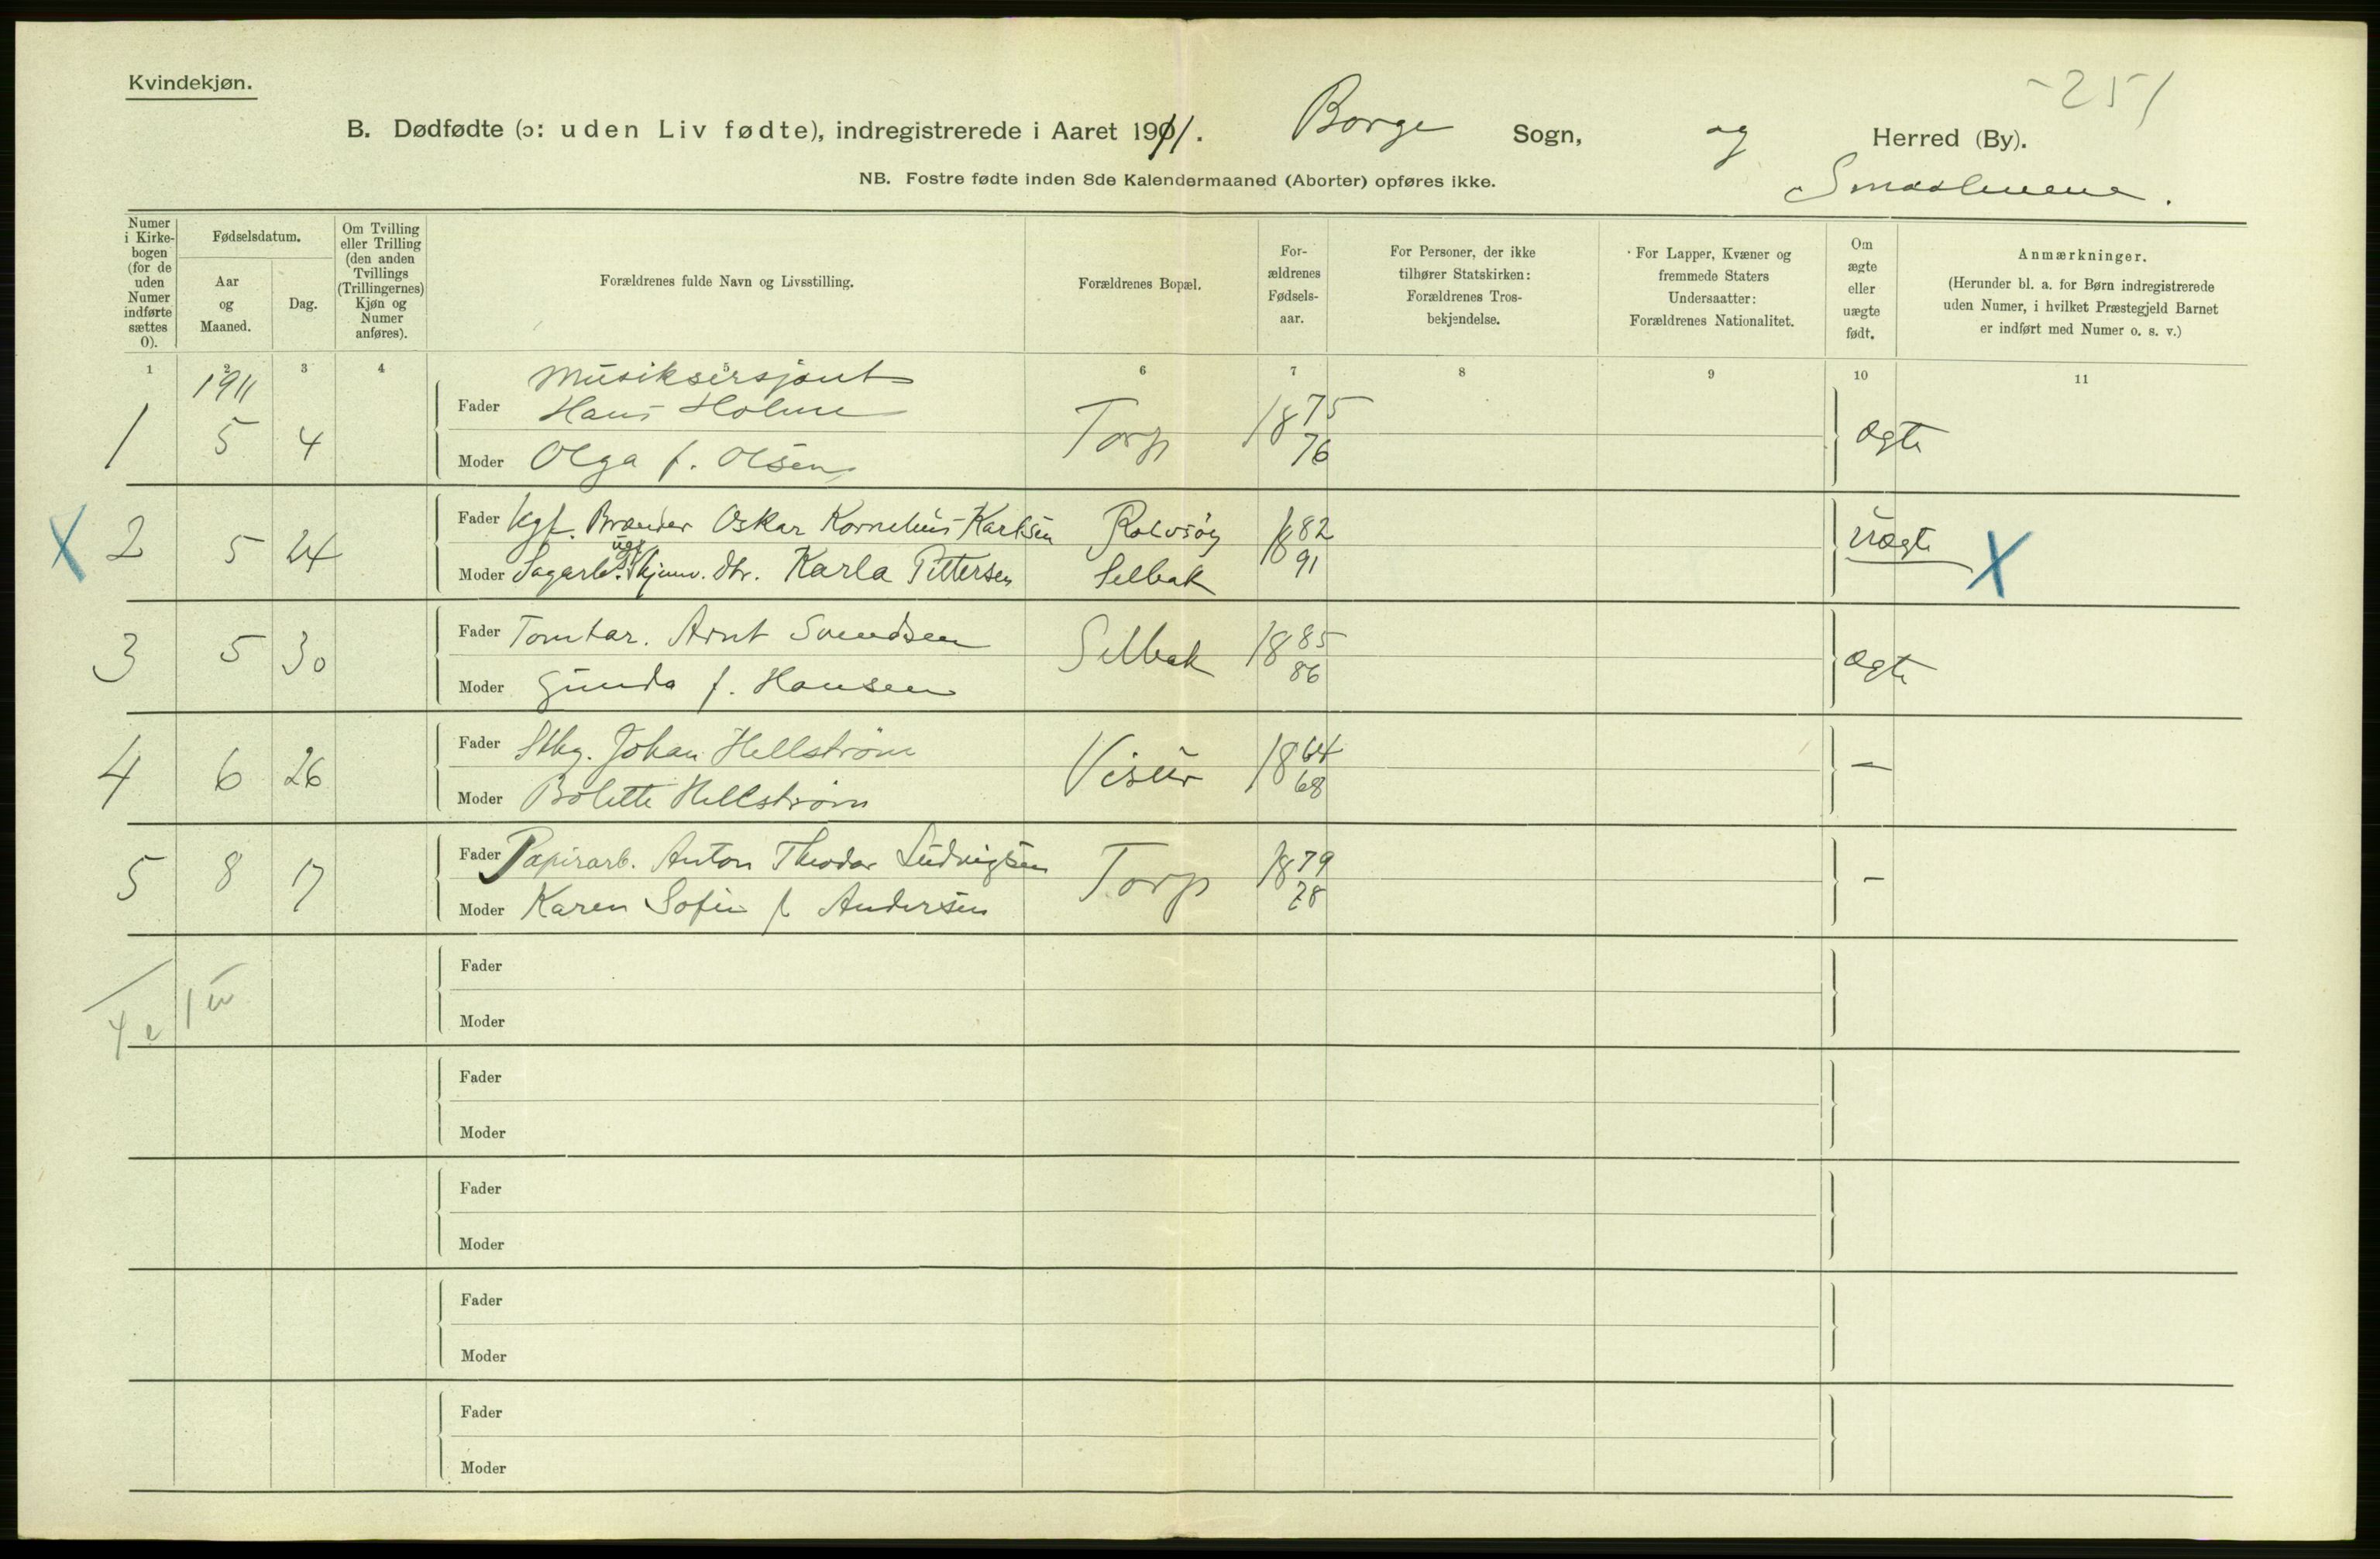 Kvindekjøn.
-251
B. Dødfødte (ɔ: uden Liv fødte), indregistrerede i Aaret 1911. Borge Sogn, og Herred (By).
Smaalenene.
NB. Fostre fødte inden 8de Kalendermaaned (Aborter) opføres ikke.
Numer i Kirke-bogen (for de uden Numer indførte sættes 0).
Fødselsdatum.
Aar og Maaned.
Dag.
Om Tvilling eller Trilling (den anden Tvillings (Trillingernes) Kjøn og Numer anføres).
Forældrenes fulde Navn og Livsstilling.
Forældrenes Bopæl.
For-ældrenes Fødsels-aar.
For Personer, der ikke tilhører Statskirken: Forældrenes Tros-bekjendelse.
For Lapper, Kvæner og fremmede Staters Undersaatter: Forældrenes Nationalitet.
Om ægte eller uægte født.
Anmærkninger.
(Herunder bl. a. for Børn indregistrerede uden Numer, i hvilket Præstegjeld Barnet er indført med Numer o. s. v.)
1 2 3 4 5 6 7 8 9 10 11
1911
Musiksersjant
1 5 4 Fader Hans Holme Torp 1875 ægte
Moder Olga f. Olsen 76
X 2 5 24 Fader Ugf. Brænder Oskar Kornelius Karlsen Rolvsøy 1882 uægte X
Moder Sagarb. ugf. Karla Pettersen Selbak 91
3 5 30 Fader Tomtar. Arnt Svendsen Selbak 1885 ægte
Moder Gunda f. Hansen 86
4 6 26 Fader Johan Hellstrøm Visur 1864 —
Moder Bolette Hellstrøm 68
5 8 17 Fader Papirarb. Anton Theodor Ludvigsen Torp 1879 -
Moder Karen Sofie f Andersen 78
Fader
Moder
4 e 1 u
Fader
Moder
Fader
Moder
Fader
Moder
Fader
Moder